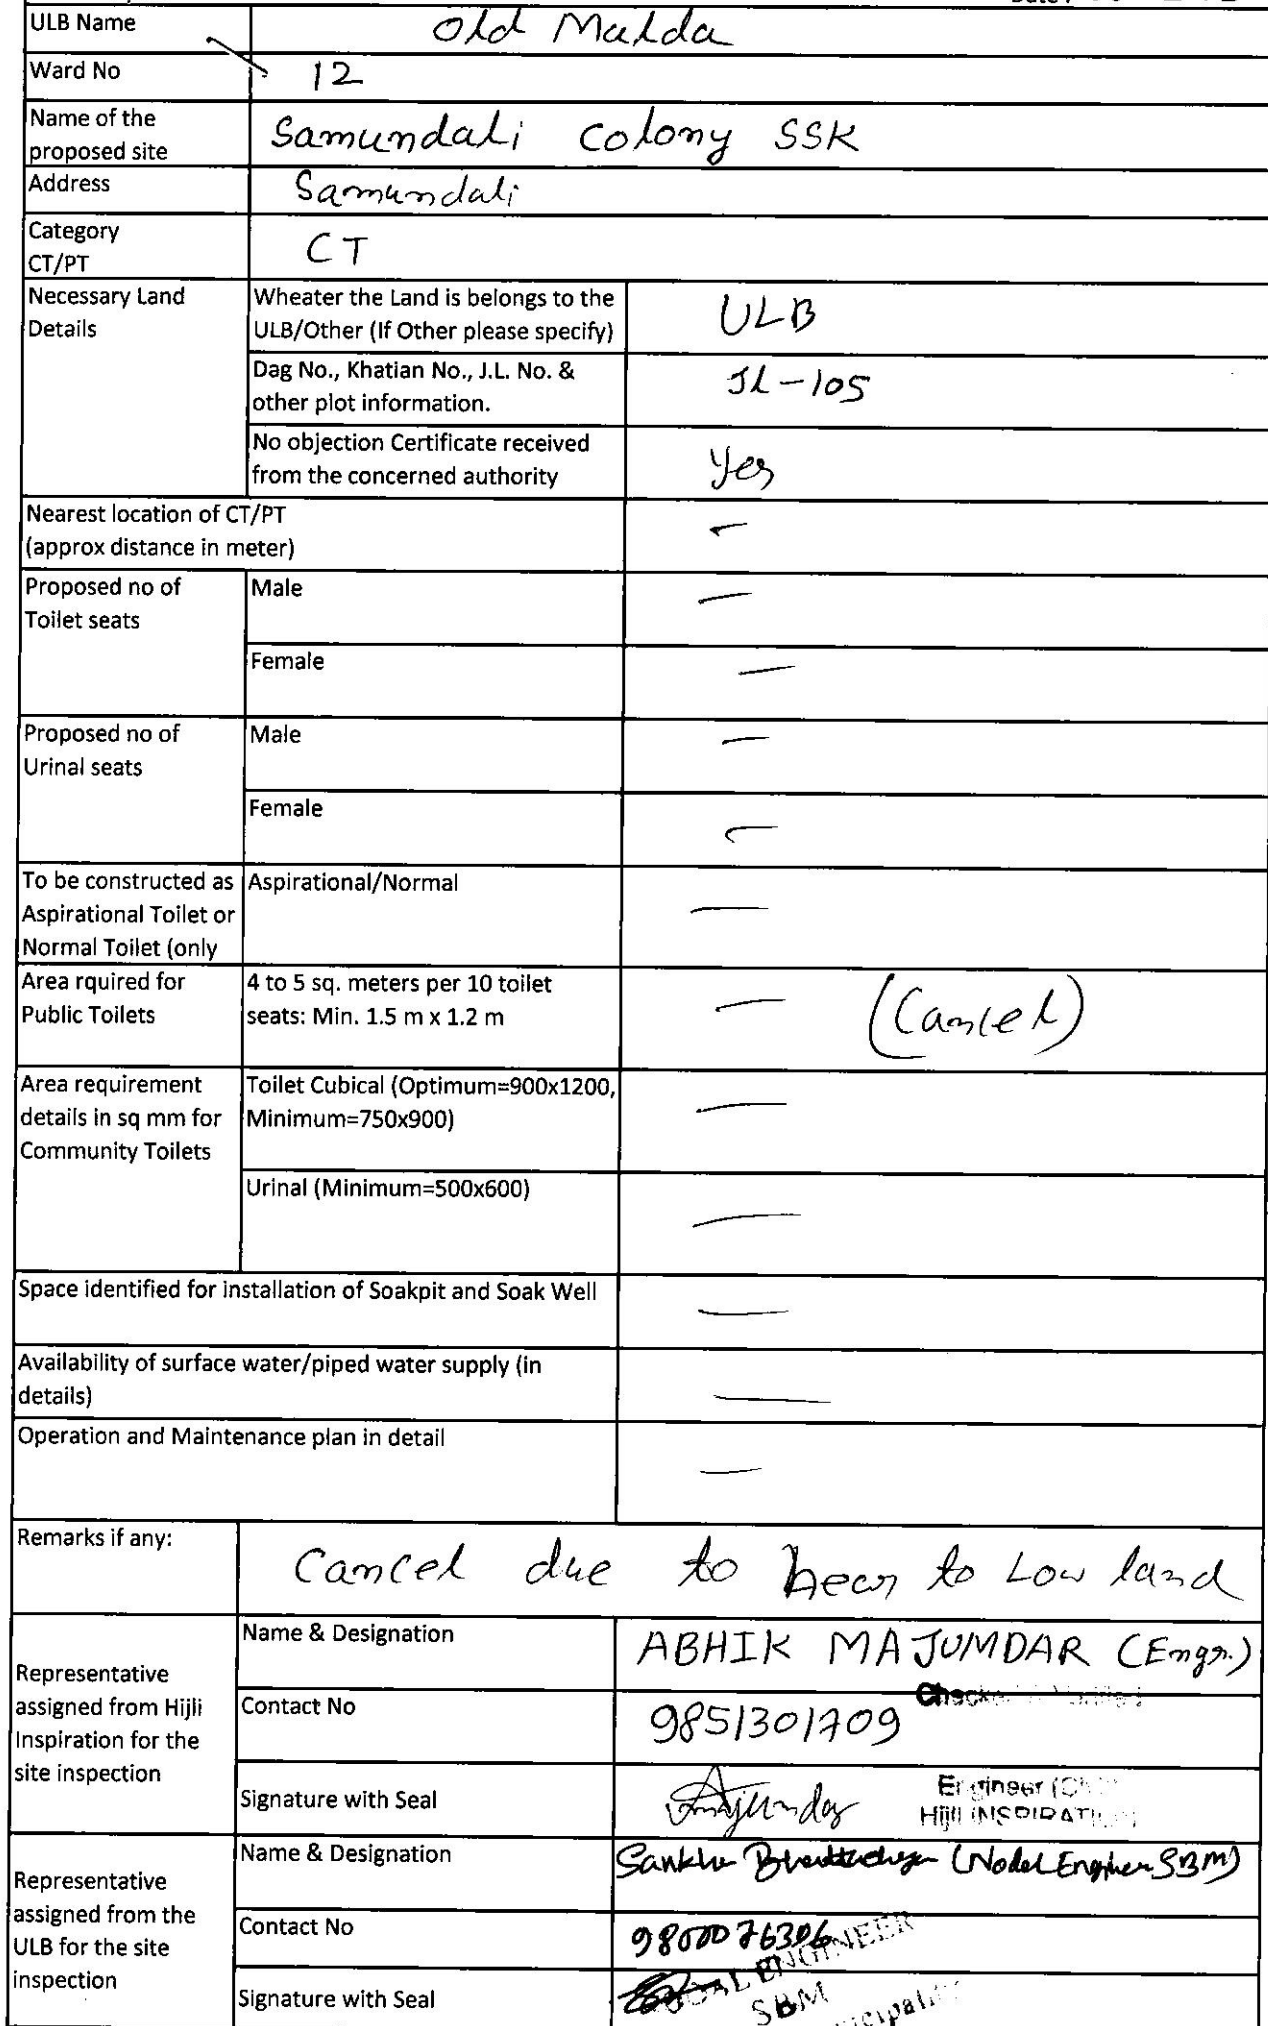 ULB Name
Old Malda
Ward No
12
Name of the
proposed site
Samundali Colony SSK
Address
Samundali
Category
CT/PT
CT
Necessary Land
Details
Wheater the Land is belongs to the
ULB/Other (If Other please specify)
ULB
Dag No., Khatian No., J.L. No. &
other plot information.
JL-105
No objection Certificate received
from the concerned authority
Yes
Nearest location of CT/PT
(approx distance in meter)
—
Proposed no of
Toilet seats
Male
—
Female
—
Proposed no of
Urinal seats
Male
—
Female
—
To be constructed as
Aspirational Toilet or
Normal Toilet (only
Aspirational/Normal
—
Area rquired for
Public Toilets
4 to 5 sq. meters per 10 toilet
seats: Min. 1.5 m x 1.2 m
— (Cancel)
Area requirement
details in sq mm for
Community Toilets
Toilet Cubical (Optimum=900x1200,
Minimum=750x900)
—
Urinal (Minimum=500x600)
—
Space identified for installation of Soakpit and Soak Well
—
Availability of surface water/piped water supply (in
details)
—
Operation and Maintenance plan in detail
—
Remarks if any:
Cancel due to near to Low land
Representative
assigned from Hijli
Inspiration for the
site inspection
Name & Designation
ABHIK MAJUMDAR (Engr.)
Contact No
9851301709
Signature with Seal
Engineer
Hijli INSPIRATION
Representative
assigned from the
ULB for the site
inspection
Name & Designation
Sankha Bhattacharya (Nodal Engineer SBM)
Contact No
9800076306
Signature with Seal
ENGINEER
SBM